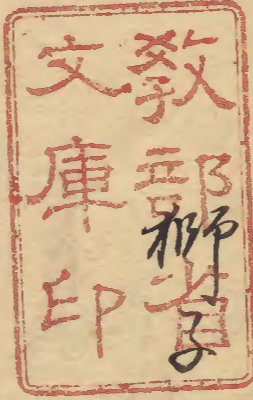 教部省
文庫印
獅子